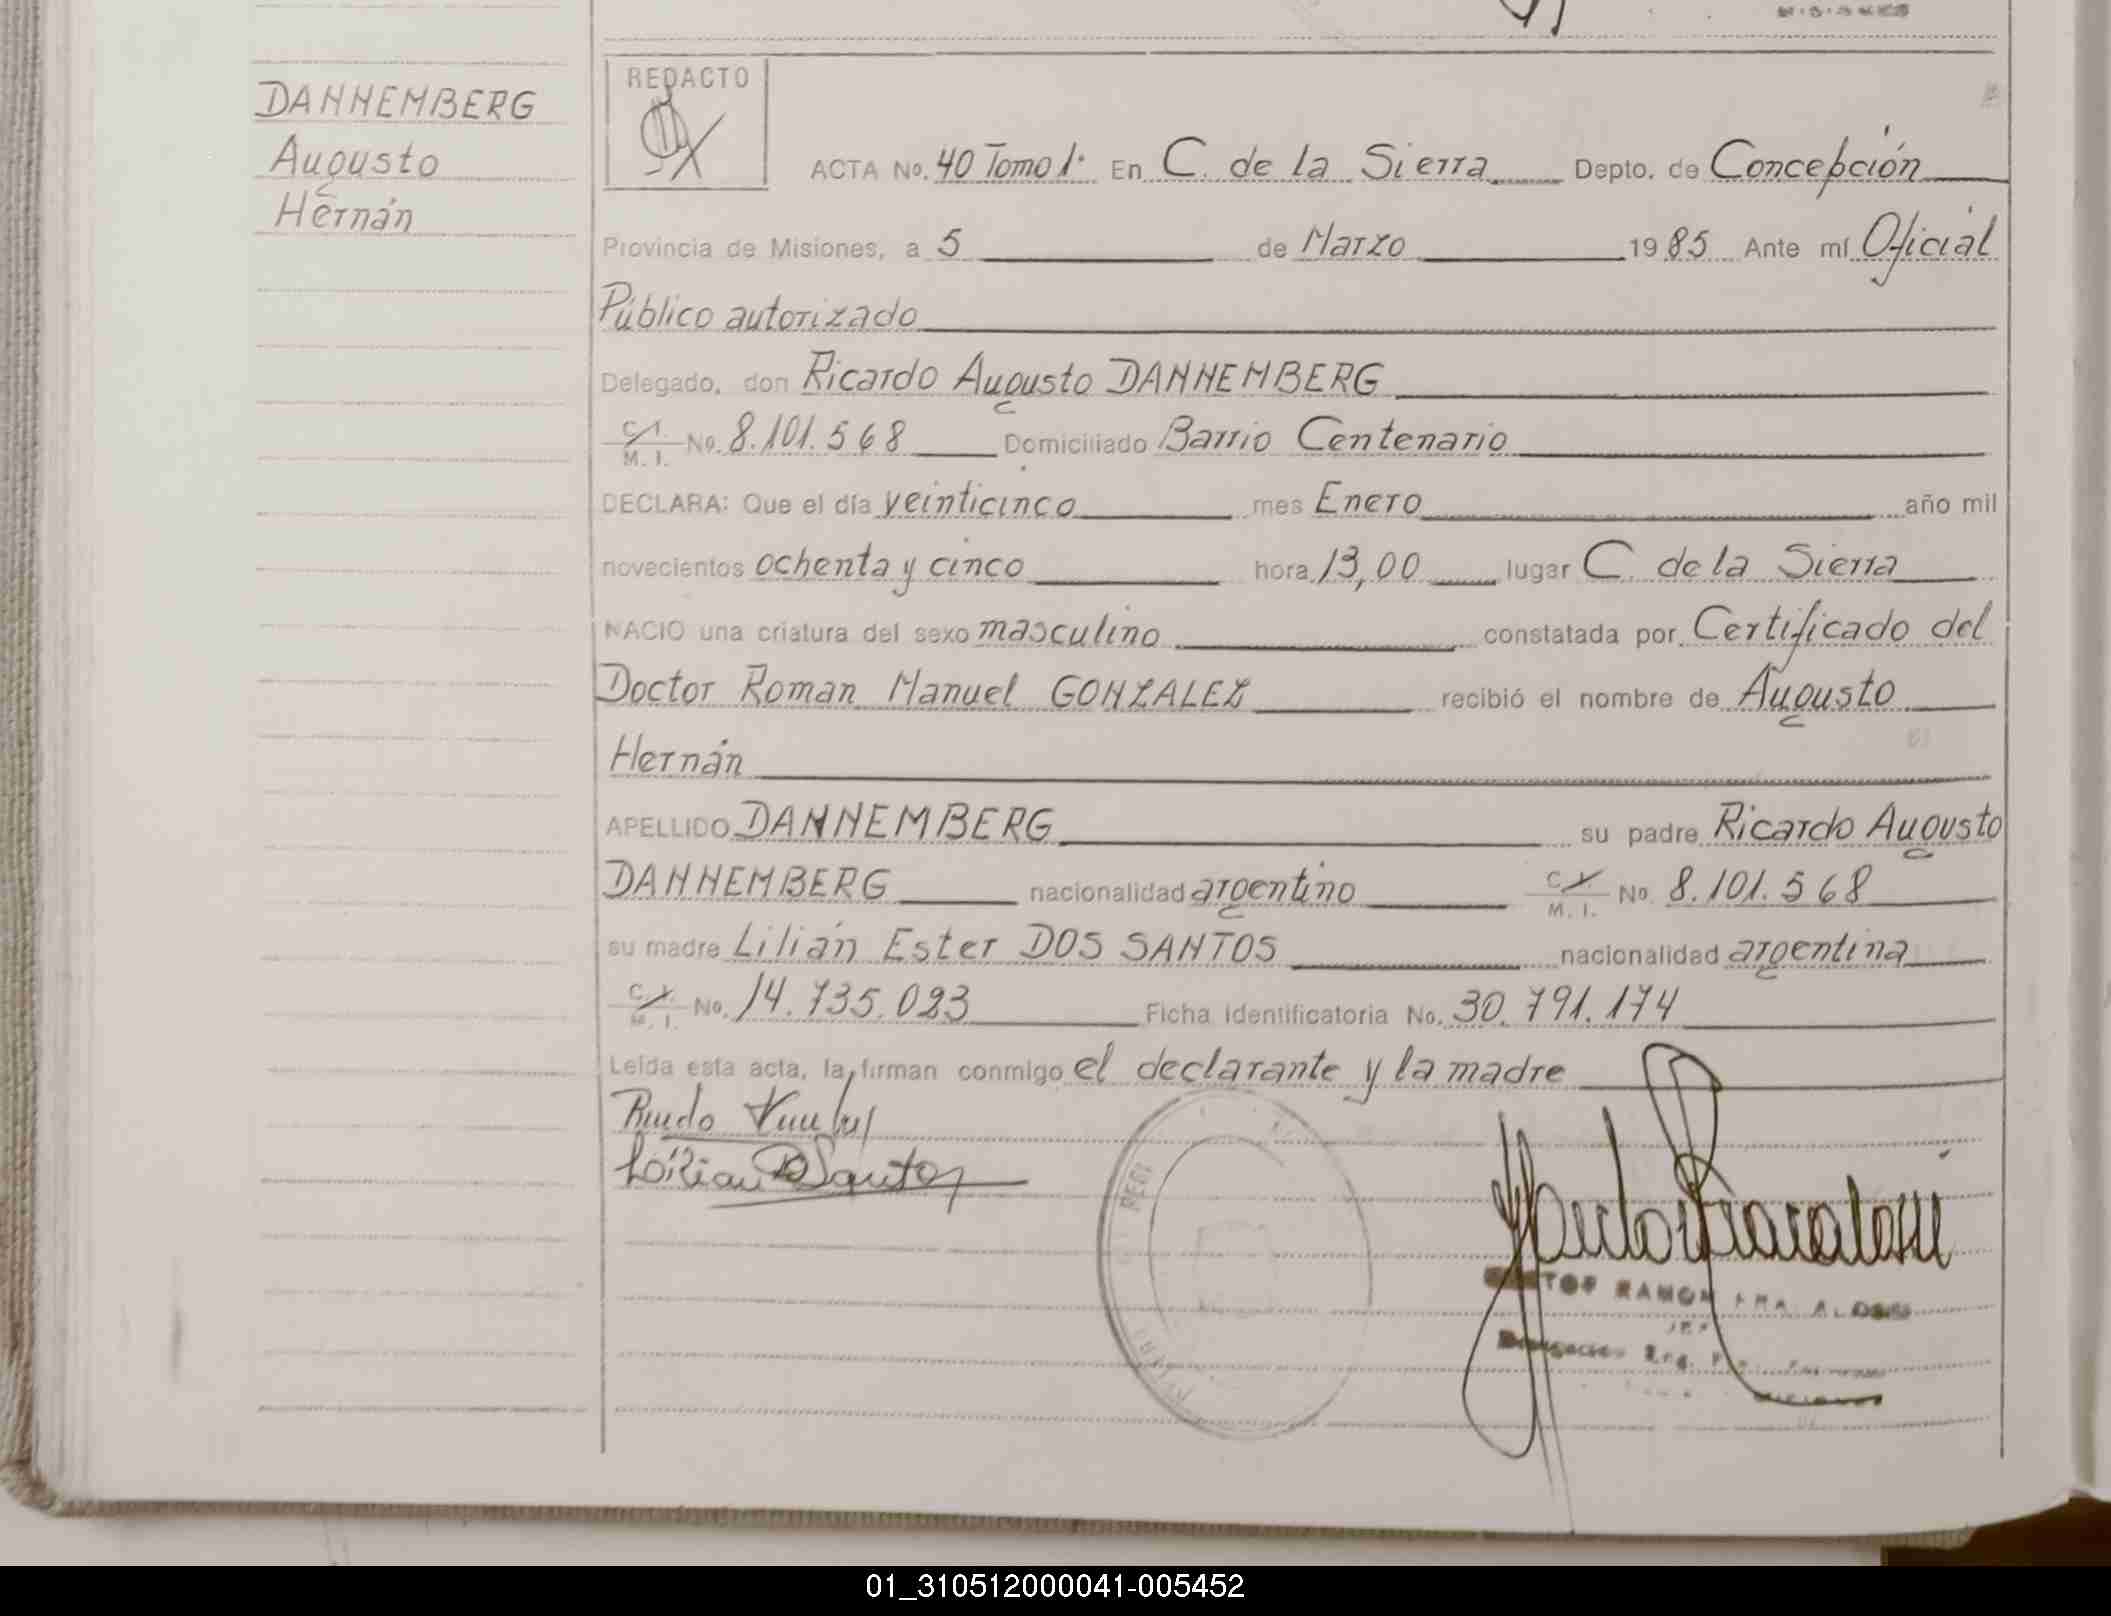 DANNEMBERG
Augusto
Hernán
REDACTO
ACTA No. 40 Tomo 1º En C. de la Sierra Depto. de Concepción
Provincia de Misiones, a 5 de Marzo 1985 Ante mí Oficial
Público autorizado
Delegado, don Ricardo Augusto DANNEMBERG
C. I. M. I. No. 8.101.568 Domiciliado Barrio Centenario
DECLARA: Que el día veinticinco mes Enero año mil
novecientos ochenta y cinco hora 13,00 lugar C. de la Sierra
NACIO una criatura del sexo masculino constatada por Certificado del
Doctor Roman Manuel GONZALEZ recibió el nombre de Augusto
Hernán
APELLIDO DANNEMBERG su padre Ricardo Augusto
DANNEMBERG nacionalidad argentino C. I. M. I. No. 8.101.568
su madre Lilián Ester DOS SANTOS nacionalidad argentina
C. I. M. I. No. 14.735.023 Ficha identificatoria No. 30.791.174
Leída esta acta, la firman conmigo el declarante y la madre
Lilian D Santos
RAMON
01_310512000041-005452